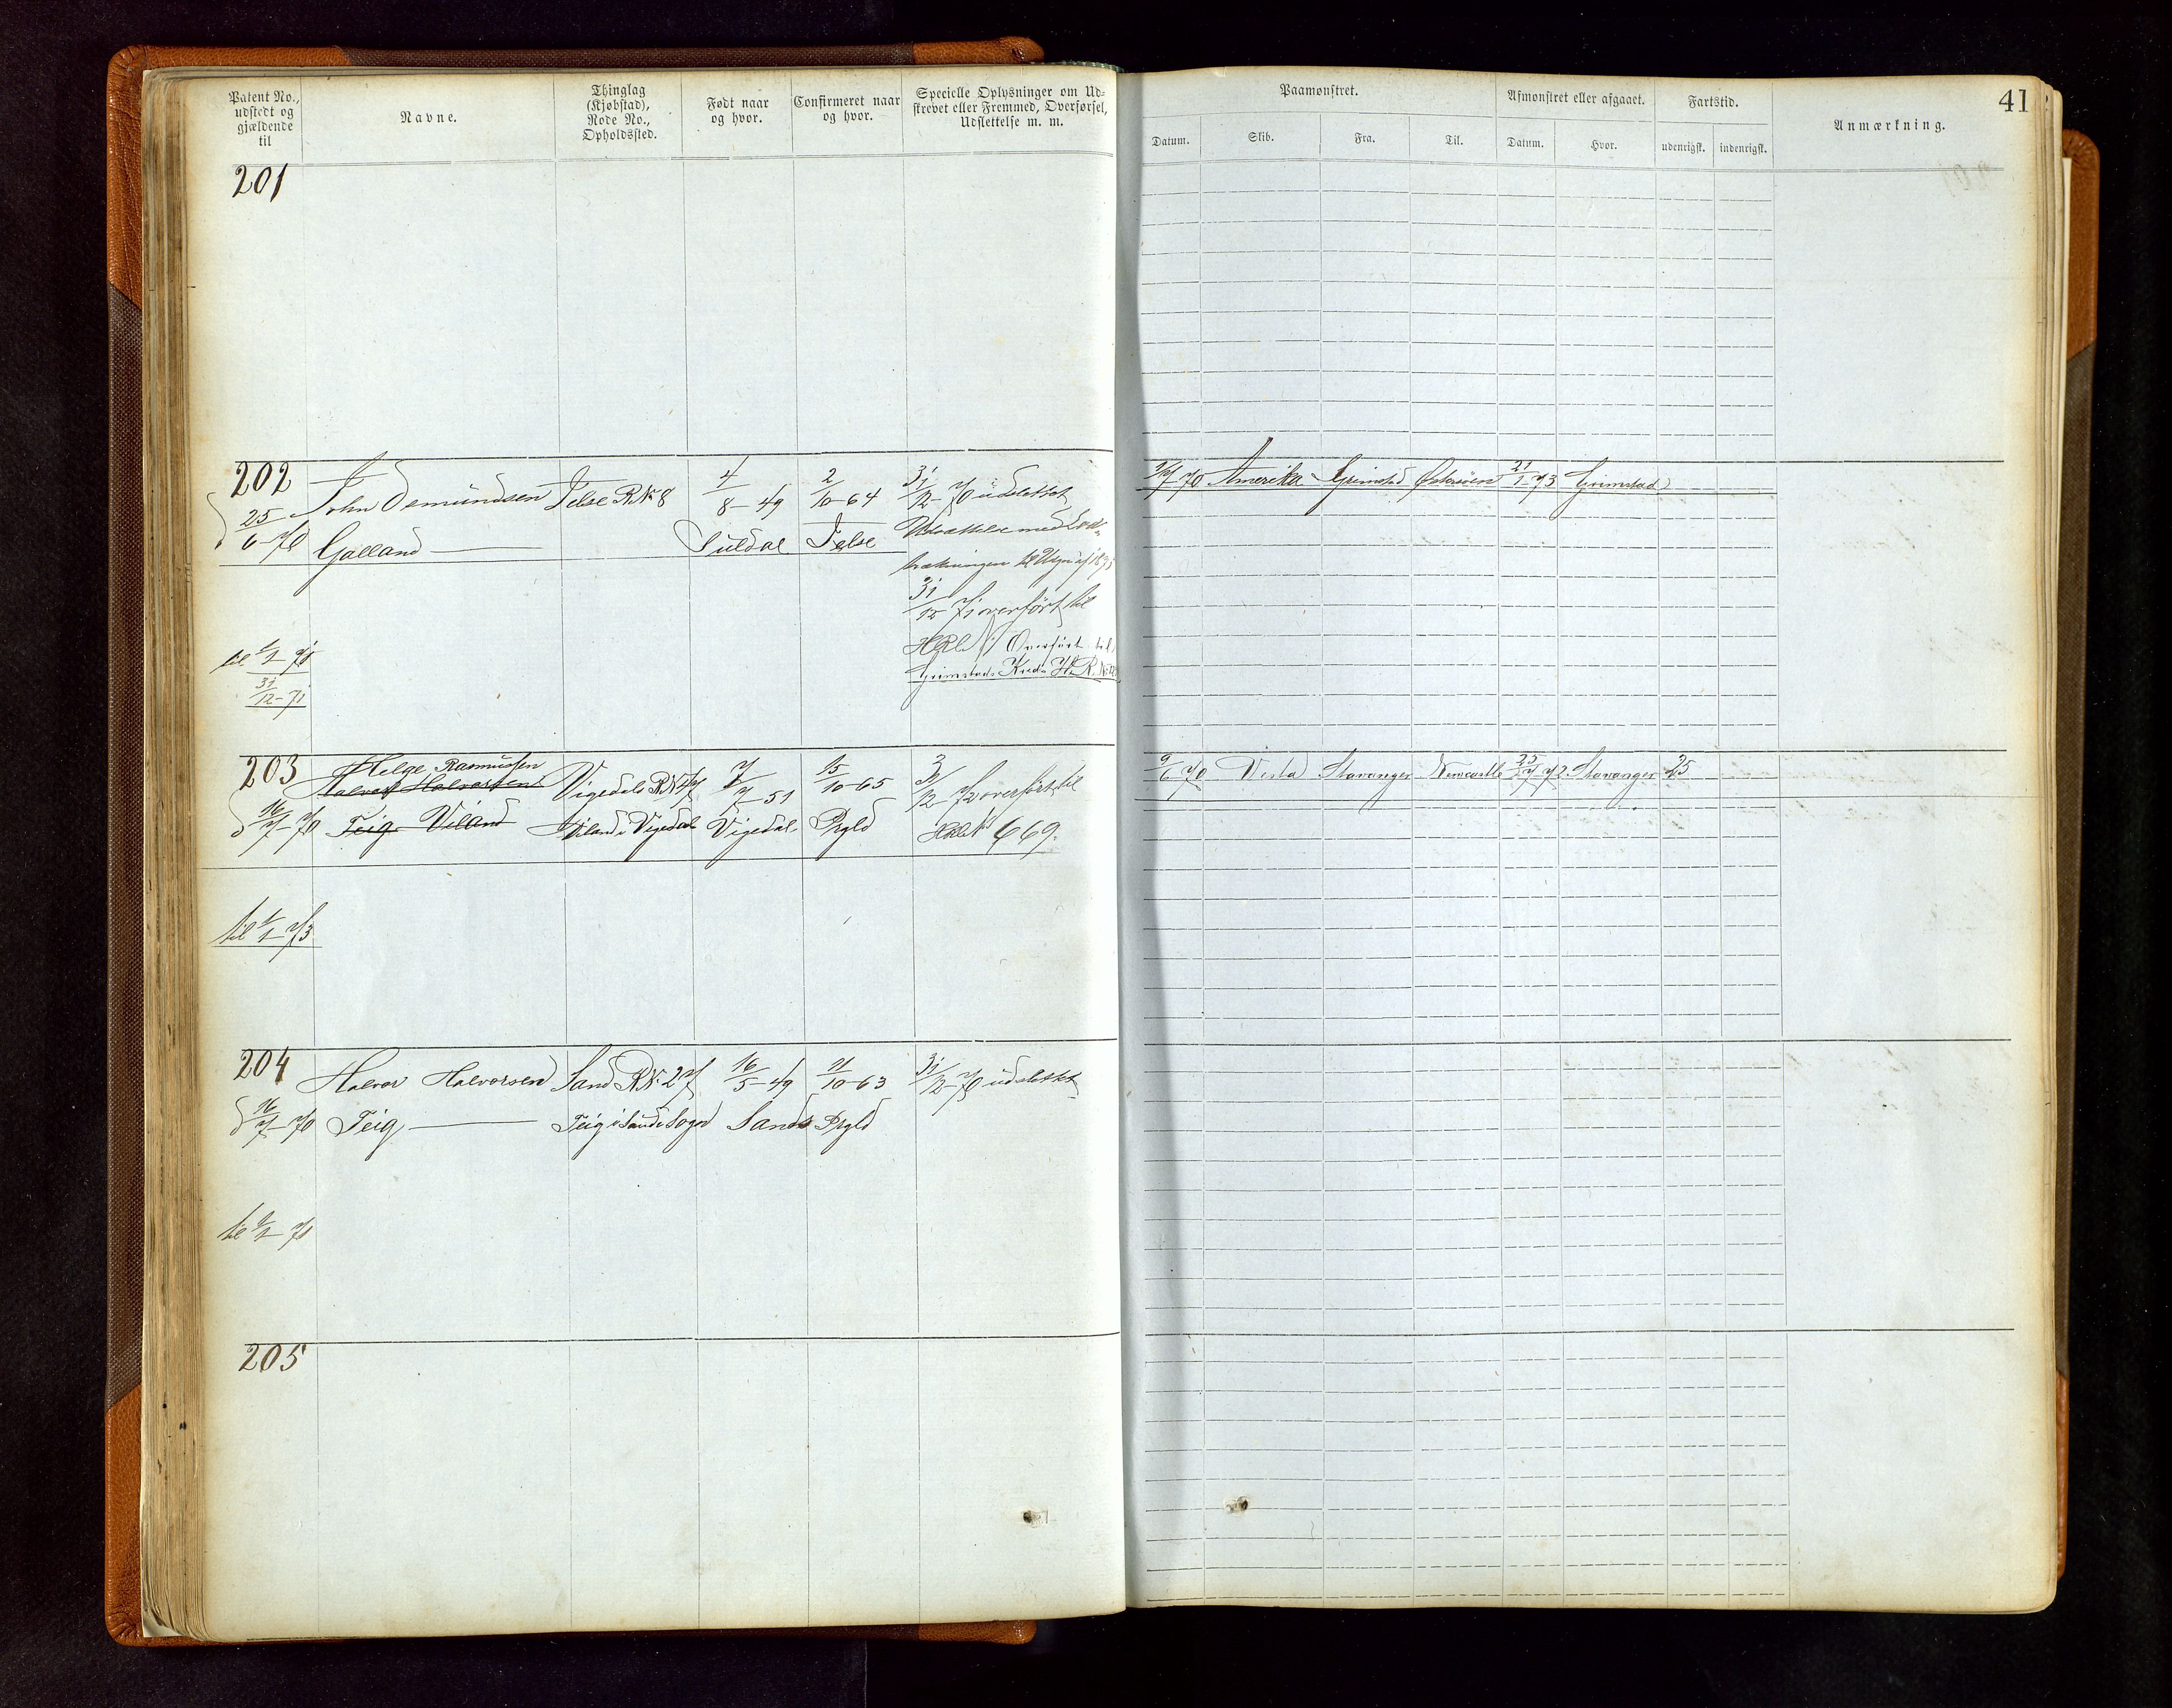 Patent No.,
udstedt og
gjældende
til
Navne.
Thinglag
(Kjøbstad),
Rode No.,
Opholdssted.
Født naar
og hvor.
Confirmeret naar
og hvor.
Specielle Oplysninger om Ud-
skrevet eller Fremmed, Overførsel,
Udslettelse m. m.
201
202
25/6-70
John Osmundsen
Galland
Jelse R.No 8
4/8-49
Suldal
2/10-64
Jelse
31/12-70 udslettet
31/12-71 overført til
Overført til
Grimstad
til 1/1 71
31/12-71
203
16/7-70
Helge Rasmussen
Halvor Halvorsen
Teig Viland
Vigedals R.N. 47
Viland i Vigedal
7/7-51
Vigedal
15/10-65
Prgld
31/12-72 overført til
HRl.No 669.
til 1/1-73
204
16/7-70
Halvor Halvorsen
Teig
Sand R.N. 27
Teig i Sands Sogn
16/5-49
Sands
9/10-63
Prgld
31/12-70 udslettet
til 1/1-71
205
41
Paamønstret.
Afmønstret eller afgaaet.
Fartstid.
Anmærkning.
Datum.
Skib.
Fra.
Til.
Datum.
Hvor.
udenrigsk.
indenrigsk.
70 Amerika Grimstad Østersøen 21/1-73 Grimstad
9/6 70 Vestad Stavanger Newcastle 25/7-72 Stavanger 25